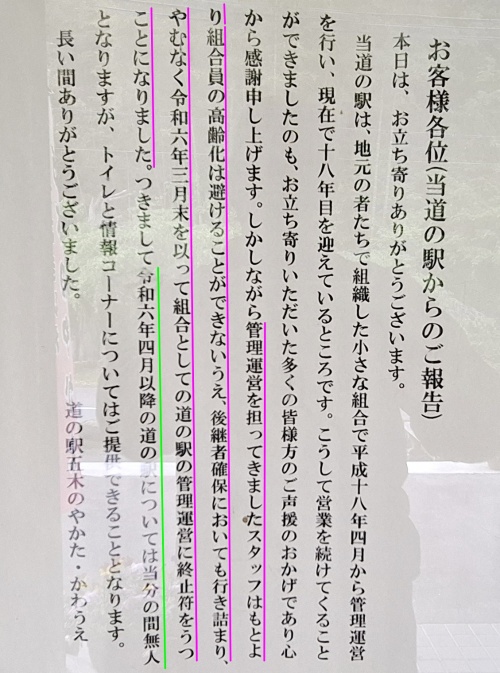 お客様各位(当道の駅からのご報告)
本日は、お立ち寄りありがとうございます。
当道の駅は、地元の者たちで組織した小さな組合で平成十八年四月から管理運営
を行い、現在で十八年目を迎えているところです。こうして営業を続けてくること
ができましたのも、お立ち寄りいただいた多くの皆様方のご声援のおかげであり心
から感謝申し上げます。しかしながら管理運営を担ってきましたスタッフはもとよ
り組合員の高齢化は避けることができないうえ、後継者確保においても行き詰まり、
やむなく令和六年三月末を以って組合としての道の駅の管理運営に終止符をうつ
ことになりました。つきまして令和六年四月以降の道の駅については当分の間無人
となりますが、トイレと情報コーナーについてはご提供できることとなります。
長い間ありがとうございました。
道の駅五木のやかた・かわうえ